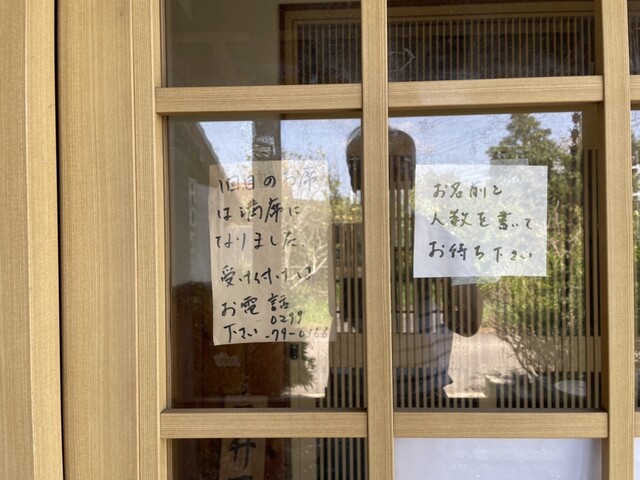 1回目のお席
は満席に
なりました、
受け付けは
お電話
0299
下さい -79-0166
お名前と
人数を書いて
お待ち下さい